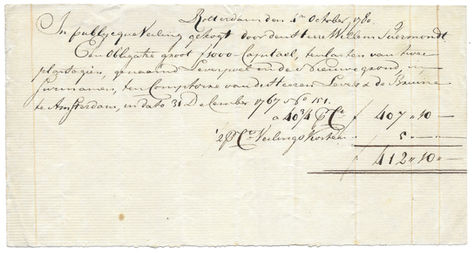 Rotterdam den 5 October, 1780.
In publycque Veiling gekogt door den Heer Willem Suermondt
Een Obligatie groot f 1000 - Capitaal, ten lasten van twee
plantagien, genaamd en de Nieuwe grond, in
Surinamen, ten Comptoire van de Heeren Lever & de Bruine
te Amsterdam, in dato 31 December 1767 No 151.
a 40¾ PCo f 407 " 10 -
½ PCo Veilings Kosten 5 " -
f 412 " 10 -